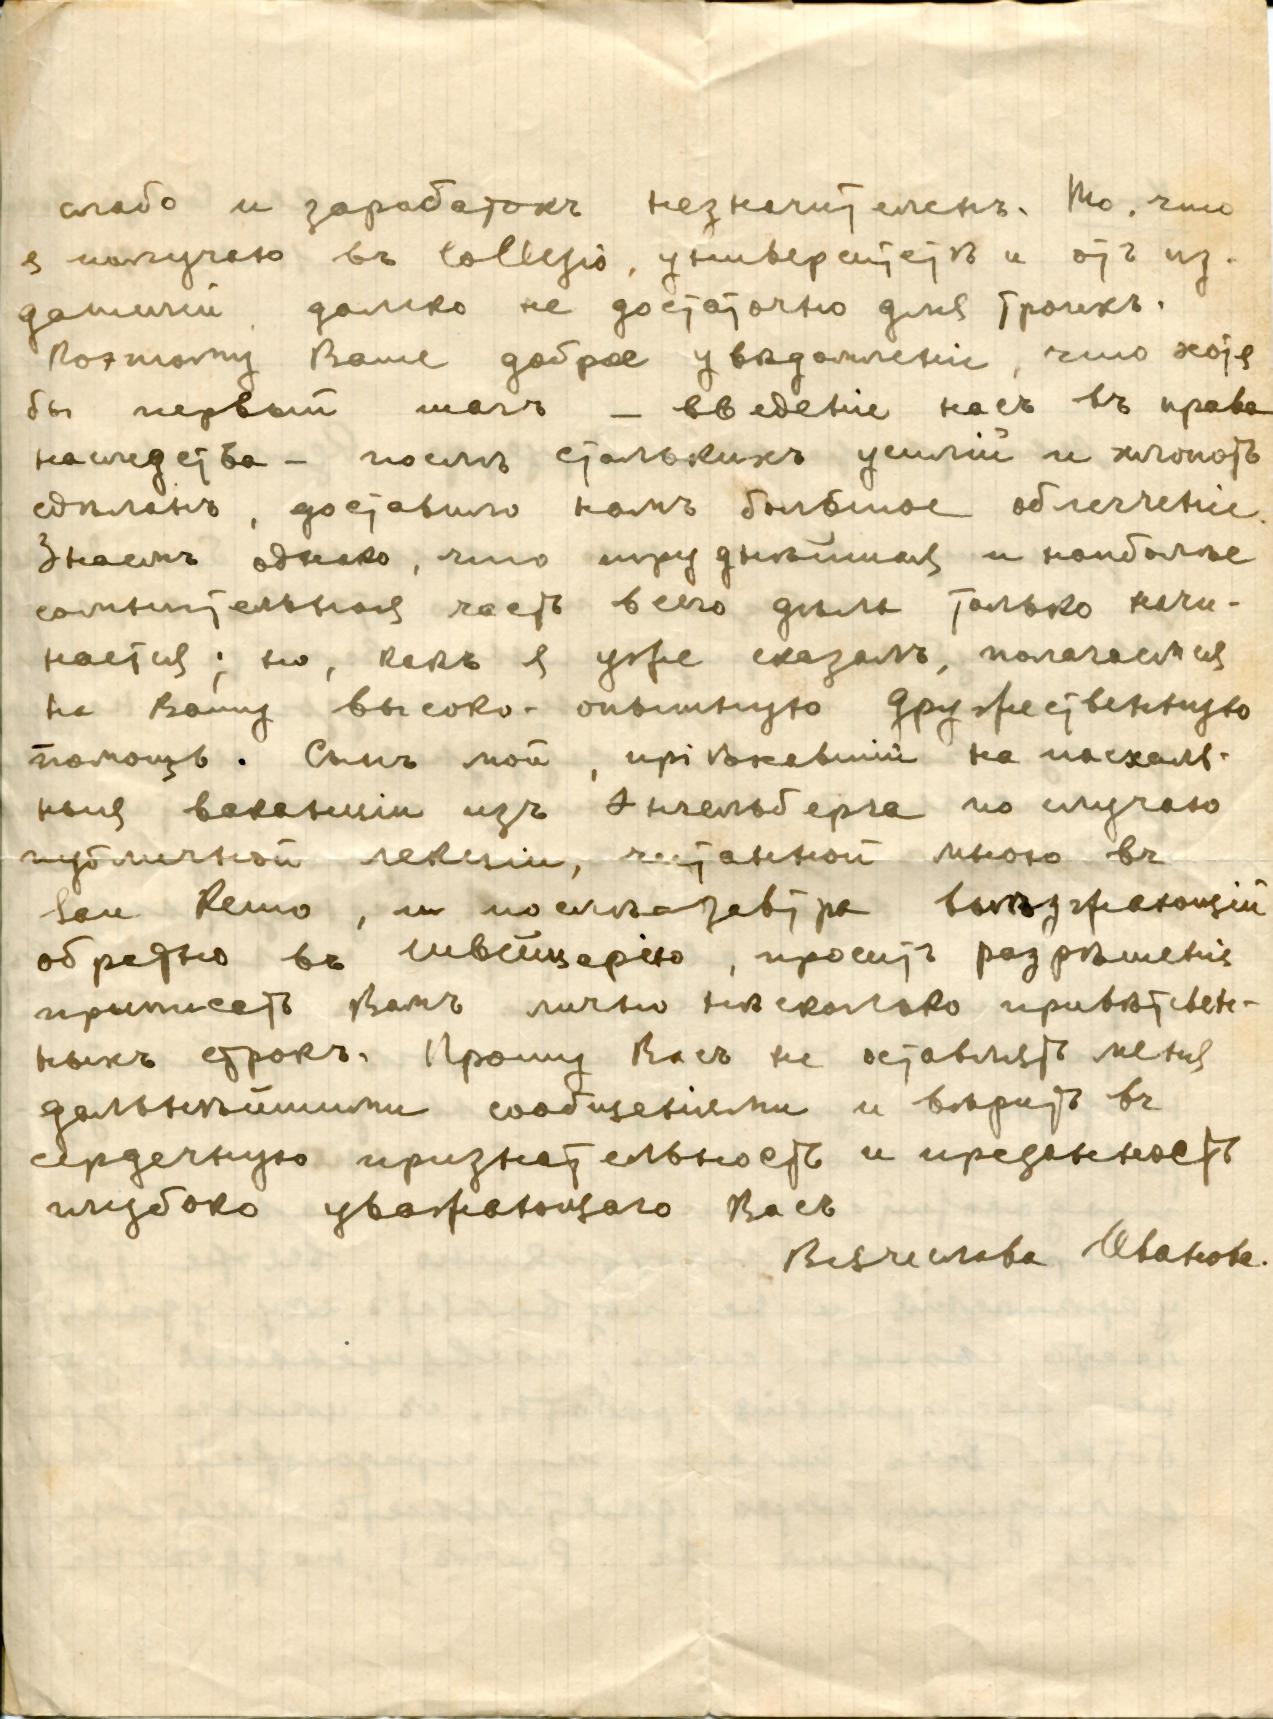 слабо и заработокъ незначителенъ. То, что
я получаю въ Collegio, университетѣ и отъ из-
дателей, далеко не достаточно для троихъ.
Поэтому Ваше доброе увѣдомленіе, что хотя
бы первый шагъ – введеніе насъ въ права
наслѣдства – послѣ столькихъ усилій и хлопотъ
сдѣланъ, доставило намъ большое облегченіе.
Знаемъ однако, что труднѣйшая и наиболѣе
сомнительная часть всего дѣла только начи-
нается; но, какъ я уже сказалъ, полагаемся
на Вашу высоко-опытную дружественную
помощь. Сынъ мой, пріѣхавшій на пасхаль-
ныя ваканціи изъ Энгельберга по случаю
публичной лекціи, читанной мною въ
San Remo, и послѣзавтра выѣзжающій
обратно въ Швейцарію, проситъ разрѣшенія
приписать Вамъ лично нѣсколько привѣтствен-
ныхъ строкъ. Прошу Васъ не оставлять меня
дальнѣйшими сообщеніями и вѣрить въ
сердечную признательность и преданность
глубоко уважающаго Васъ
Вячеслава Иванова.